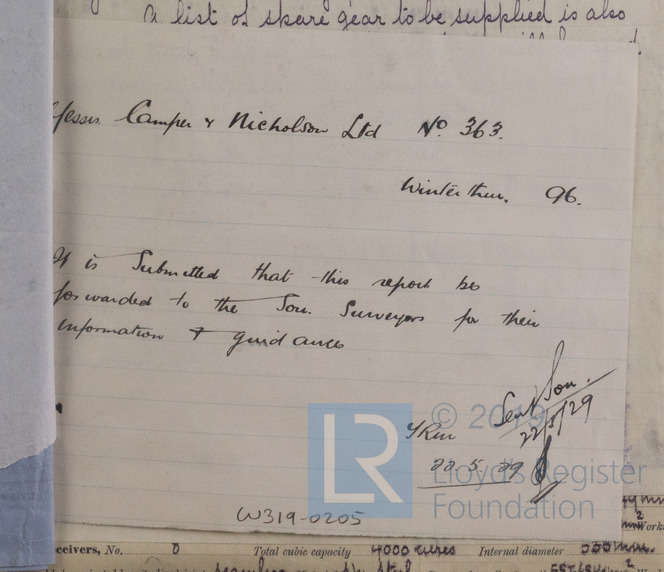 A list of spare gear to be supplied is also
Messrs. Camper & Nicholson Ltd No. 363.
Winterthur. 96.
It is Submitted that this report be
forwarded to the Sou. Surveyors for their
information & guidance
Sent Sou.
22/5/29
22.5.29
© 2019
LR
Lloyd's Register
Foundation
W319-0205
ceivers, No. 8 Total cubic capacity 4000 litres Internal diameter